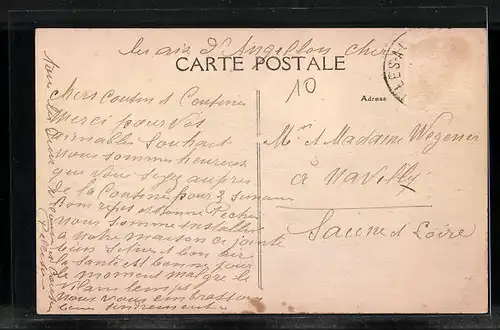 Les aix d'Angillon Cher
CARTE POSTALE
LES-AI
10
Adresse
Chers Cousins & Cousines
Merci pour vos
aimables Souhait
nous somme heureux
que vous soyez aupres
de la Cousine pour 3 Semaines
Bon repos et Bonne Peche
nous somme installer
a notre maison ci jointe
bien situer & bon air
la santé est bonne pour
le moment malgre le
vilans temps
nous vous embrassons
bien tendrement
Mr et Madame Wegener
à Navilly
Saone et Loire